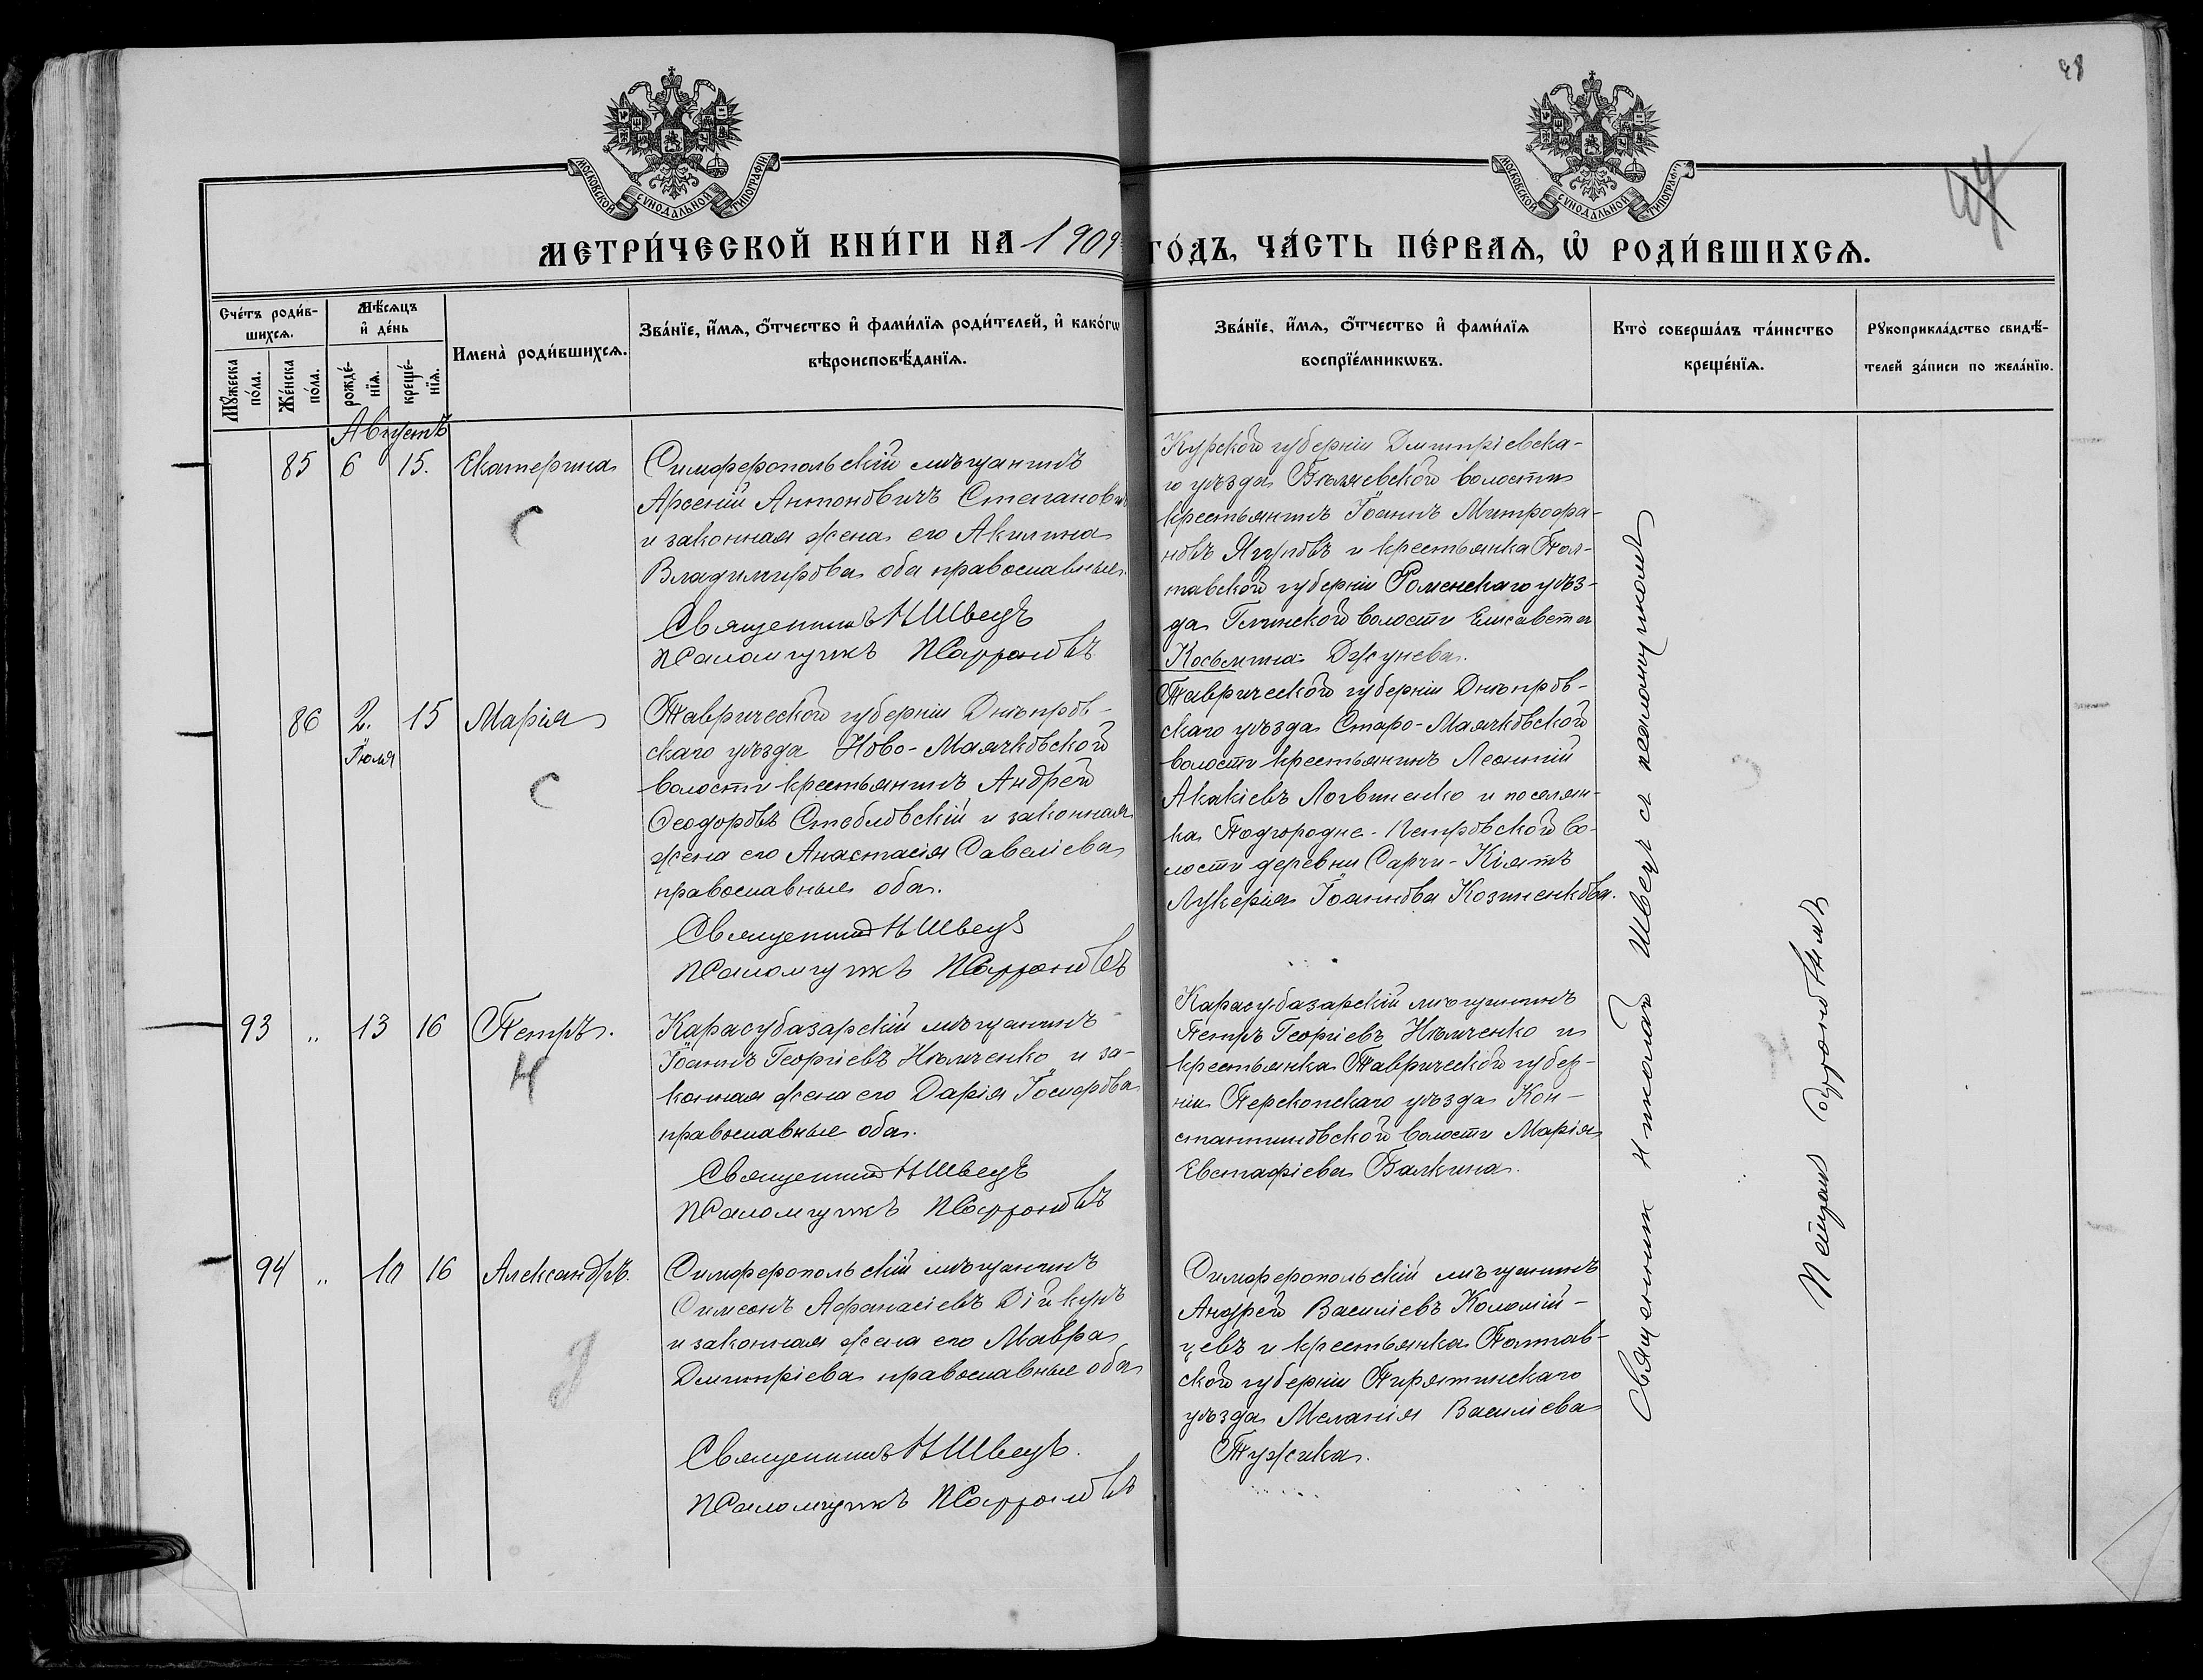 48
47
МОСКОВСКОЙ СѴНОДАЛЬНОЙ ТИПОГРАФІИ
МОСКОВСКОЙ СѴНОДАЛЬНОЙ ТИПОГРАФІИ
МЕТРИ́ЧЕСКОЙ КНИ́ГИ НА 1909 ГО́ДЪ, ЧА́СТЬ ПЕ́РВАѦ, Ѡ҆ РОДИ́ВШИХСѦ.
Сче́тъ роди́в-
шихсѧ.
Мꙋ́жеска по́ла.
Же́нска по́ла.
Мѣ́сѧцъ
и҆ де́нь
рожде́-
нїѧ.
креще́-
нїѧ.
Имена̀ роди́вшихсѧ.
Зва́нїе, и҆́мѧ, ѻ҆́тчество и҆ фами́лїѧ роди́телей, и҆ како́гѡ
вѣроисповѣ́данїѧ.
Зва́нїе, и҆́мѧ, ѻ҆́тчество и҆ фами́лїѧ
воспрїе́мникѡвъ.
Кто̀ соверша́лъ та́инство
креще́нїѧ.
Рꙋкоприкла́дство свидѣ́-
телей за́писи по жела́нїю.
Августъ
85 6 15. Екатерина
С
Симферопольскій мѣщанинъ
Арсеній Антоновичъ Степанович
и законная жена его Акилина
Владимирова оба православные.
Священникъ Н Швецъ
Псаломщикъ П Сафроновъ
Курской губерніи Дмитріевска-
го уѣзда волости
крестьянинъ Іоаннъ Митрофа-
новъ Ягуповъ и крестьянка Пол-
тавской губерніи Роменскаго уѣз-
да Глинской волости Елисавета
Косьмина Джунева.
86 2. 15 Марія
Іюля
С
Таврической губерніи Днѣпров-
скаго уѣзда Ново-Маячковской
волости крестьянинъ Андрей
Ѳеодоровъ Стебловскій и законная
жена его Анастасія Савеліева
православные оба.
Священникъ Н Швецъ
Псаломщикъ П Сафроновъ
Таврической губерніи Днѣпров-
скаго уѣзда Старо-Маячковской
волости крестьянинъ Леонтій
Акакіевъ Логвиненко и поселян-
ка Подгородне-Петровской во-
лости деревни Сарчи-Кіятъ
Лукерія Іоаннова Козменкова.
93 " 13 16 Петръ.
Н
Карасубазарскій мѣщанинъ
Іоаннъ Георгіевъ Нѣмченко и за-
конная жена его Дарія Іосифова
православные оба.
Священникъ Н Швецъ
Псаломщикъ П Сафроновъ
Карасубазарскій мѣщанинъ
Петръ Георгіевъ Нѣмченко и
крестьянка Таврической губер-
ніи Перекопскаго уѣзда Кон-
стантиновской волости Марія
Евстафіева Балкина.
94 " 10 16 Александръ.
Д
Симферопольскій мѣщанинъ
Симеонъ Афанасіевъ Дійкунъ
и законная жена его Мавра
Димитріева православные оба
Священникъ Н Швецъ.
Псаломщикъ П Сафроновъ
Симферопольскій мѣщанинъ
Андрей Василіевъ Коломій-
цевъ и крестьянка Полтав-
ской губерніи Пирятинскаго
уѣзда Меланія Василіева
Тужика.
Священник Николай Швецъ съ псаломщикомъ
Сафроновымъ